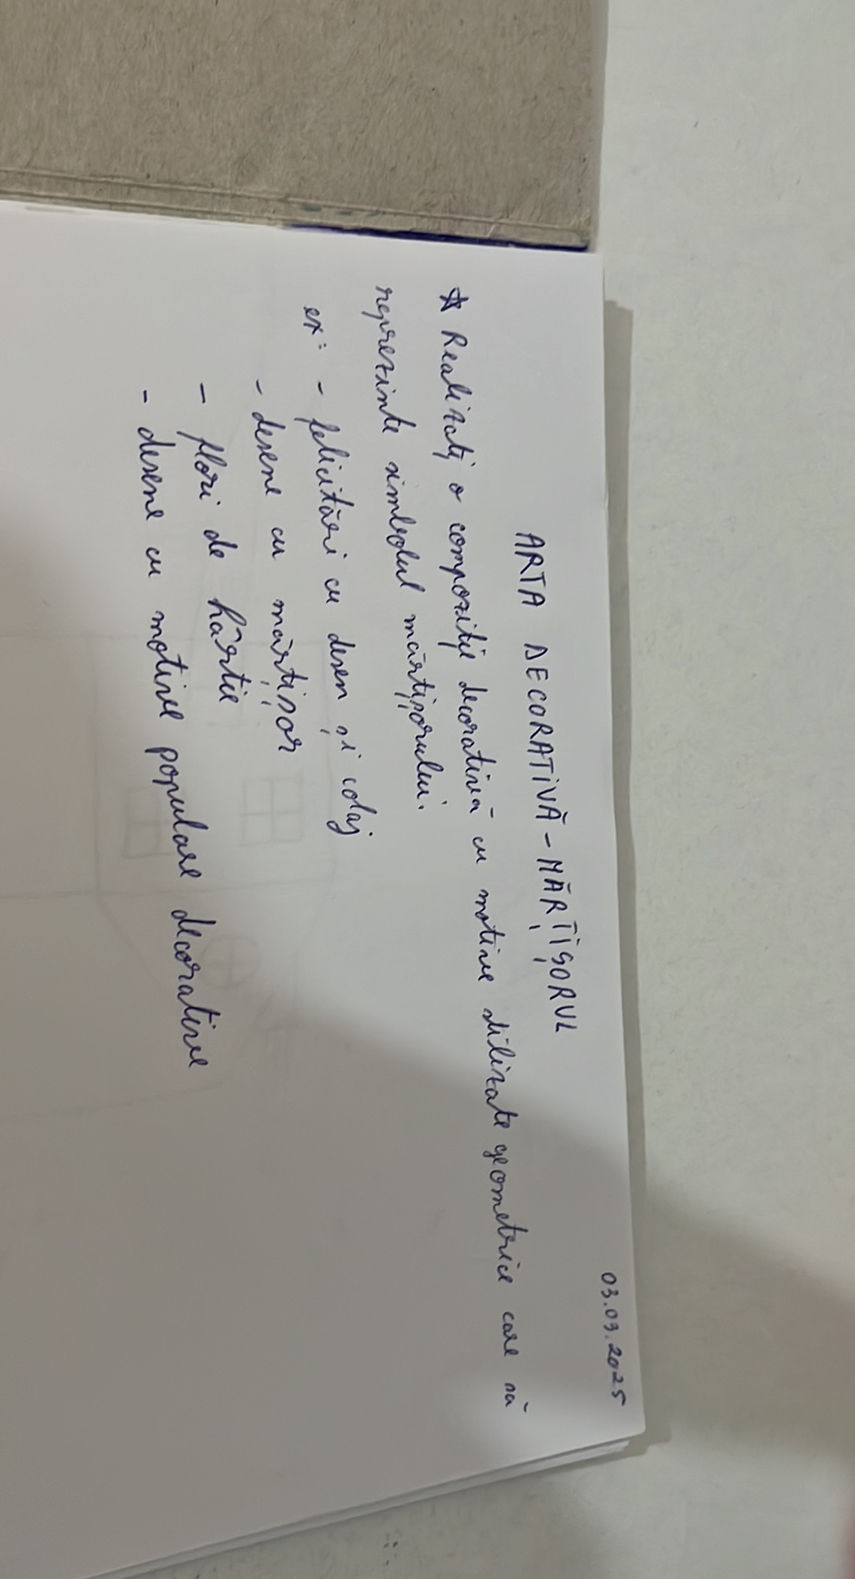 03.03.2025
ARTA DECORATIVĂ - MĂRȚIȘORUL
* Realizați o compoziție decorativă cu motive stilizate geometrice care să
reprezinte simbolul mărțișorului.
ex: - felicitări cu desen și colaj
- desene cu mărțișor
- flori de hârtie
- desene cu motive populare decorative